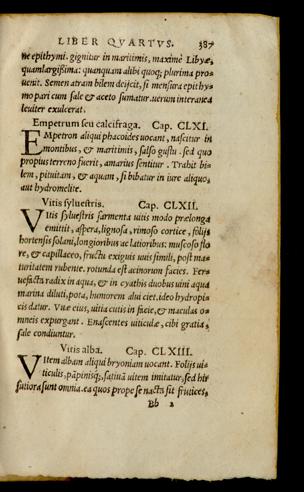 LIBER QVARTVS. 387
ne epithymi. gignitur in maritimis, maximè Libyæ,
quamlargißima: quanquam alibi quoq; plurima pro-
uenit. Semen atram bilem deijcit, si mensura epithy-
mo pari cum sale & aceto sumatur. uerum interanea
leuiter exulcerat.
Empetrum seu calcifraga. Cap. CLXI.
EMpetron aliqui phacoides uocant, nascitur in
montibus, & maritimis, salso gustu. sed quo
propius terreno fuerit, amarius sentitur. Trahit bi-
lem, pituitam, & aquam, si bibatur in iure aliquo,
aut hydromelite.
Vitis syluestris. Cap. CLXII.
VItis syluestris sarmenta uitis modo prælonga
emittit, aspera, lignosa, rimoso cortice, folijs
hortensis solani, longioribus ac latioribus: muscoso flo
re, & capillaceo, fructu exiguis uuis simili, post ma-
turitatem rubente. rotunda est acinorum facies. Fer-
uefacta radix in aqua, & in cyathis duobus uini aqua
marina diluti, pota, humorem alui ciet. ideo hydropi-
cis datur. Vuæ eius, uitia cutis in facie, & maculas o-
mneis expurgant. Enascentes uiticulæ, cibi gratia,
sale condiuntur.
Vitis alba. Cap. CLXIII.
VItem albam aliqui bryoniam uocant. Folijs ui-
ticulis, pāpinisq;, satiuā uitem imitatur, sed hir
sutiora sunt omnia. ea quos prope se nacta sit frutices,
Bb 2